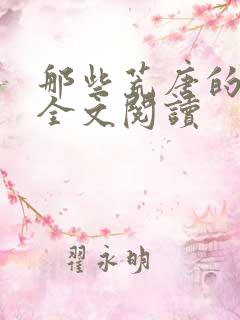 那些荒唐的
全文閱讀
翟永明